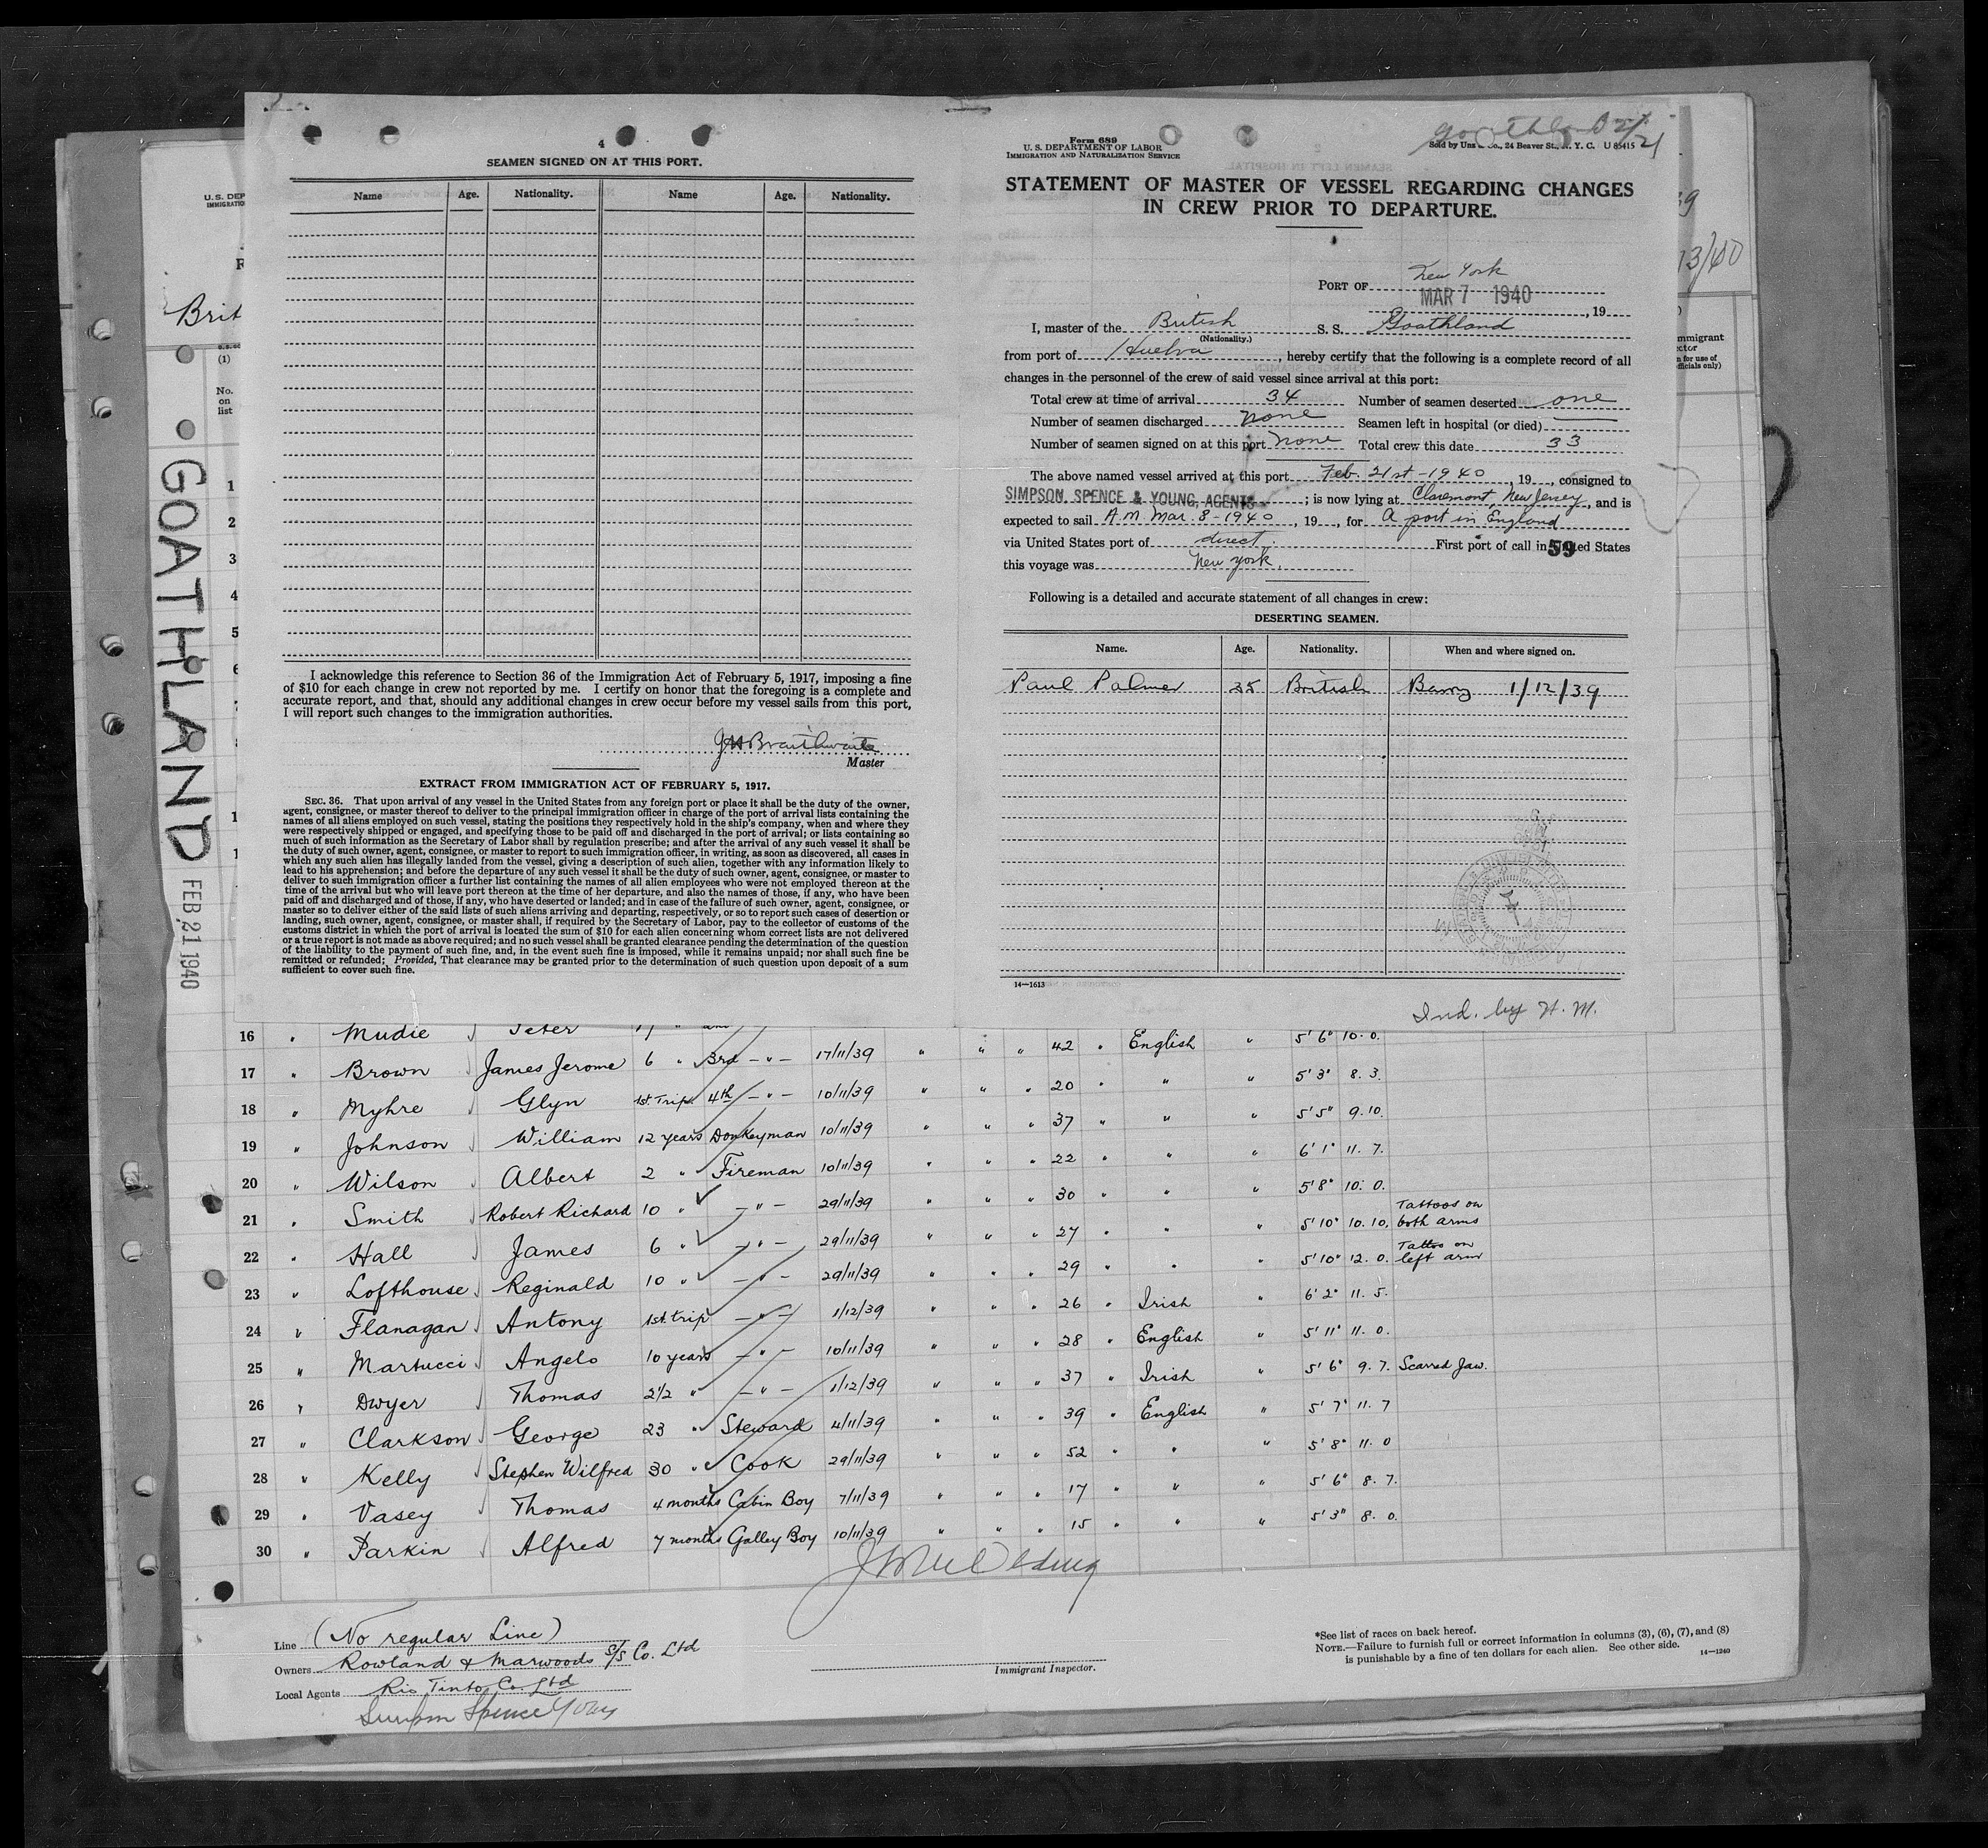 4
SEAMEN SIGNED ON AT THIS PORT.
Name Age. Nationality. Name Age. Nationality.
I acknowledge this reference to Section 36 of the Immigration Act of February 5, 1917, imposing a fine
of $10 for each change in crew not reported by me. I certify on honor that the foregoing is a complete and
accurate report, and that, should any additional changes in crew occur before my vessel sails from this port,
I will report such changes to the immigration authorities.
JH Braithwaite
Master
EXTRACT FROM IMMIGRATION ACT OF FEBRUARY 5, 1917.
SEC. 36. That upon arrival of any vessel in the United States from any foreign port or place it shall be the duty of the owner,
agent, consignee, or master thereof to deliver to the principal immigration officer in charge of the port of arrival lists containing the
names of all aliens employed on such vessel, stating the positions they respectively hold in the ship's company, when and where they
were respectively shipped or engaged, and specifying those to be paid off and discharged in the port of arrival; or lists containing so
much of such information as the Secretary of Labor shall by regulation prescribe; and after the arrival of any such vessel it shall be
the duty of such owner, agent, consignee, or master to report to such immigration officer, in writing, as soon as discovered, all cases in
which any such alien has illegally landed from the vessel, giving a description of such alien, together with any information likely to
lead to his apprehension; and before the departure of any such vessel it shall be the duty of such owner, agent, consignee, or master to
deliver to such immigration officer a further list containing the names of all alien employees who were not employed thereon at the
time of the arrival but who will leave port thereon at the time of her departure, and also the names of those, if any, who have been
paid off and discharged and of those, if any, who have deserted or landed; and in case of the failure of such owner, agent, consignee, or
master so to deliver either of the said lists of such aliens arriving and departing, respectively, or so to report such cases of desertion or
landing, such owner, agent, consignee, or master shall, if required by the Secretary of Labor, pay to the collector of customs of the
customs district in which the port of arrival is located the sum of $10 for each alien concerning whom correct lists are not delivered
or a true report is not made as above required; and no such vessel shall be granted clearance pending the determination of the question
of the liability to the payment of such fine, and, in the event such fine is imposed, while it remains unpaid; nor shall such fine be
remitted or refunded; Provided, That clearance may be granted prior to the determination of such question upon deposit of a sum
sufficient to cover such fine.
Form 689
U. S. DEPARTMENT OF LABOR
IMMIGRATION AND NATURALIZATION SERVICE
Goathland 2/21
Sold by Unz & Co., 24 Beaver St., N. Y. C. U 85415
STATEMENT OF MASTER OF VESSEL REGARDING CHANGES
IN CREW PRIOR TO DEPARTURE.
PORT OF New York
MAR 7 1940 , 19
I, master of the British S. S. Goathland
(Nationality.)
from port of Huelva , hereby certify that the following is a complete record of all
changes in the personnel of the crew of said vessel since arrival at this port:
Total crew at time of arrival 34 Number of seamen deserted one
Number of seamen discharged none Seamen left in hospital (or died) —
Number of seamen signed on at this port none Total crew this date 33
The above named vessel arrived at this port Feb. 21st - 1940 , 19 , consigned to
SIMPSON, SPENCE & YOUNG, AGENTS ; is now lying at Claremont, New Jersey , and is
expected to sail A.M. Mar. 8 - 1940 , 19 , for A port in England
via United States port of direct. First port of call in United States
59
this voyage was New York.
Following is a detailed and accurate statement of all changes in crew:
DESERTING SEAMEN.
Name. Age. Nationality. When and where signed on.
Paul Palmer 35 British Barry 1/12/39
14—1613
Ind. by H. M.
U. S. DEP
IMMIGRATIO
Brit
(1)
No.
on
list
13/40
mmigrant
ctor
n for use of
fficials only)
GOATHLAND FEB 21 1940
1
2
3
4
5
16 " Mudie Peter
17 " Brown James Jerome 6 " 3rd - " - 17/11/39 " " " 42 " English " 5' 6" 10. 0.
18 " Myhre Glyn 1st. Trip 4th - " - 10/11/39 " " " 20 " " " 5' 3" 8. 3.
19 " Johnson William 12 years Donkeyman 10/11/39 " " " 37 " " " 5' 5" 9. 10.
20 " Wilson Albert 2 " Fireman 10/11/39 " " " 22 " " " 6' 1" 11. 7.
21 " Smith Robert Richard 10 " - " - 29/11/39 " " " 30 " " " 5' 8" 10. 0.
22 " Hall James 6 " - " - 29/11/39 " " " 27 " " " 5' 10" 10. 10. Tattoos on both arms
23 " Lofthouse Reginald 10 " - " - 29/11/39 " " " 29 " " " 5' 10" 12. 0. Tattoo on left arm
24 " Flanagan Antony 1st. trip - " - 1/12/39 " " " 26 " Irish " 6' 2" 11. 5.
25 " Martucci Angelo 10 years - " - 10/11/39 " " " 28 " English " 5' 11" 11. 0.
26 " Dwyer Thomas 2½ " - " - 1/12/39 " " " 37 " Irish " 5' 6" 9. 7. Scarred Jaw.
27 " Clarkson George 23 " Steward 4/11/39 " " " 39 " English " 5' 7" 11. 7
28 " Kelly Stephen Wilfred 30 " Cook 29/11/39 " " " 52 " " " 5' 8" 11. 0
29 " Vasey Thomas 4 months Cabin Boy 7/11/39 " " " 17 " " " 5' 6" 8. 7.
30 " Parkin Alfred 7 months Galley Boy 10/11/39 " " " 15 " " " 5' 3" 8. 0.
Line (No regular Line)
Owners Rowland & Marwoods S/S Co. Ltd
Local Agents Rio Tinto Co. Ltd
Simpson Spence Young
Immigrant Inspector.
*See list of races on back hereof.
NOTE.—Failure to furnish full or correct information in columns (3), (6), (7), and (8)
is punishable by a fine of ten dollars for each alien. See other side. 14—1240